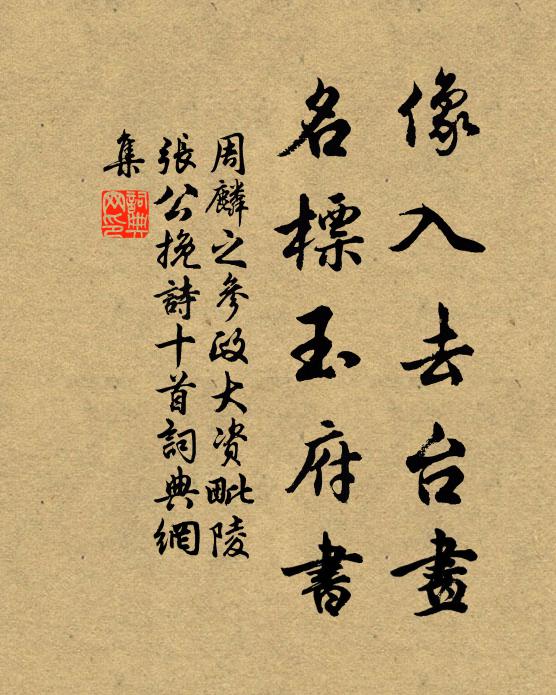 像入去台畫
名標玉府書
周麟之參政大资毗陵
張公挽詩十首詞典網
集
詞典网印